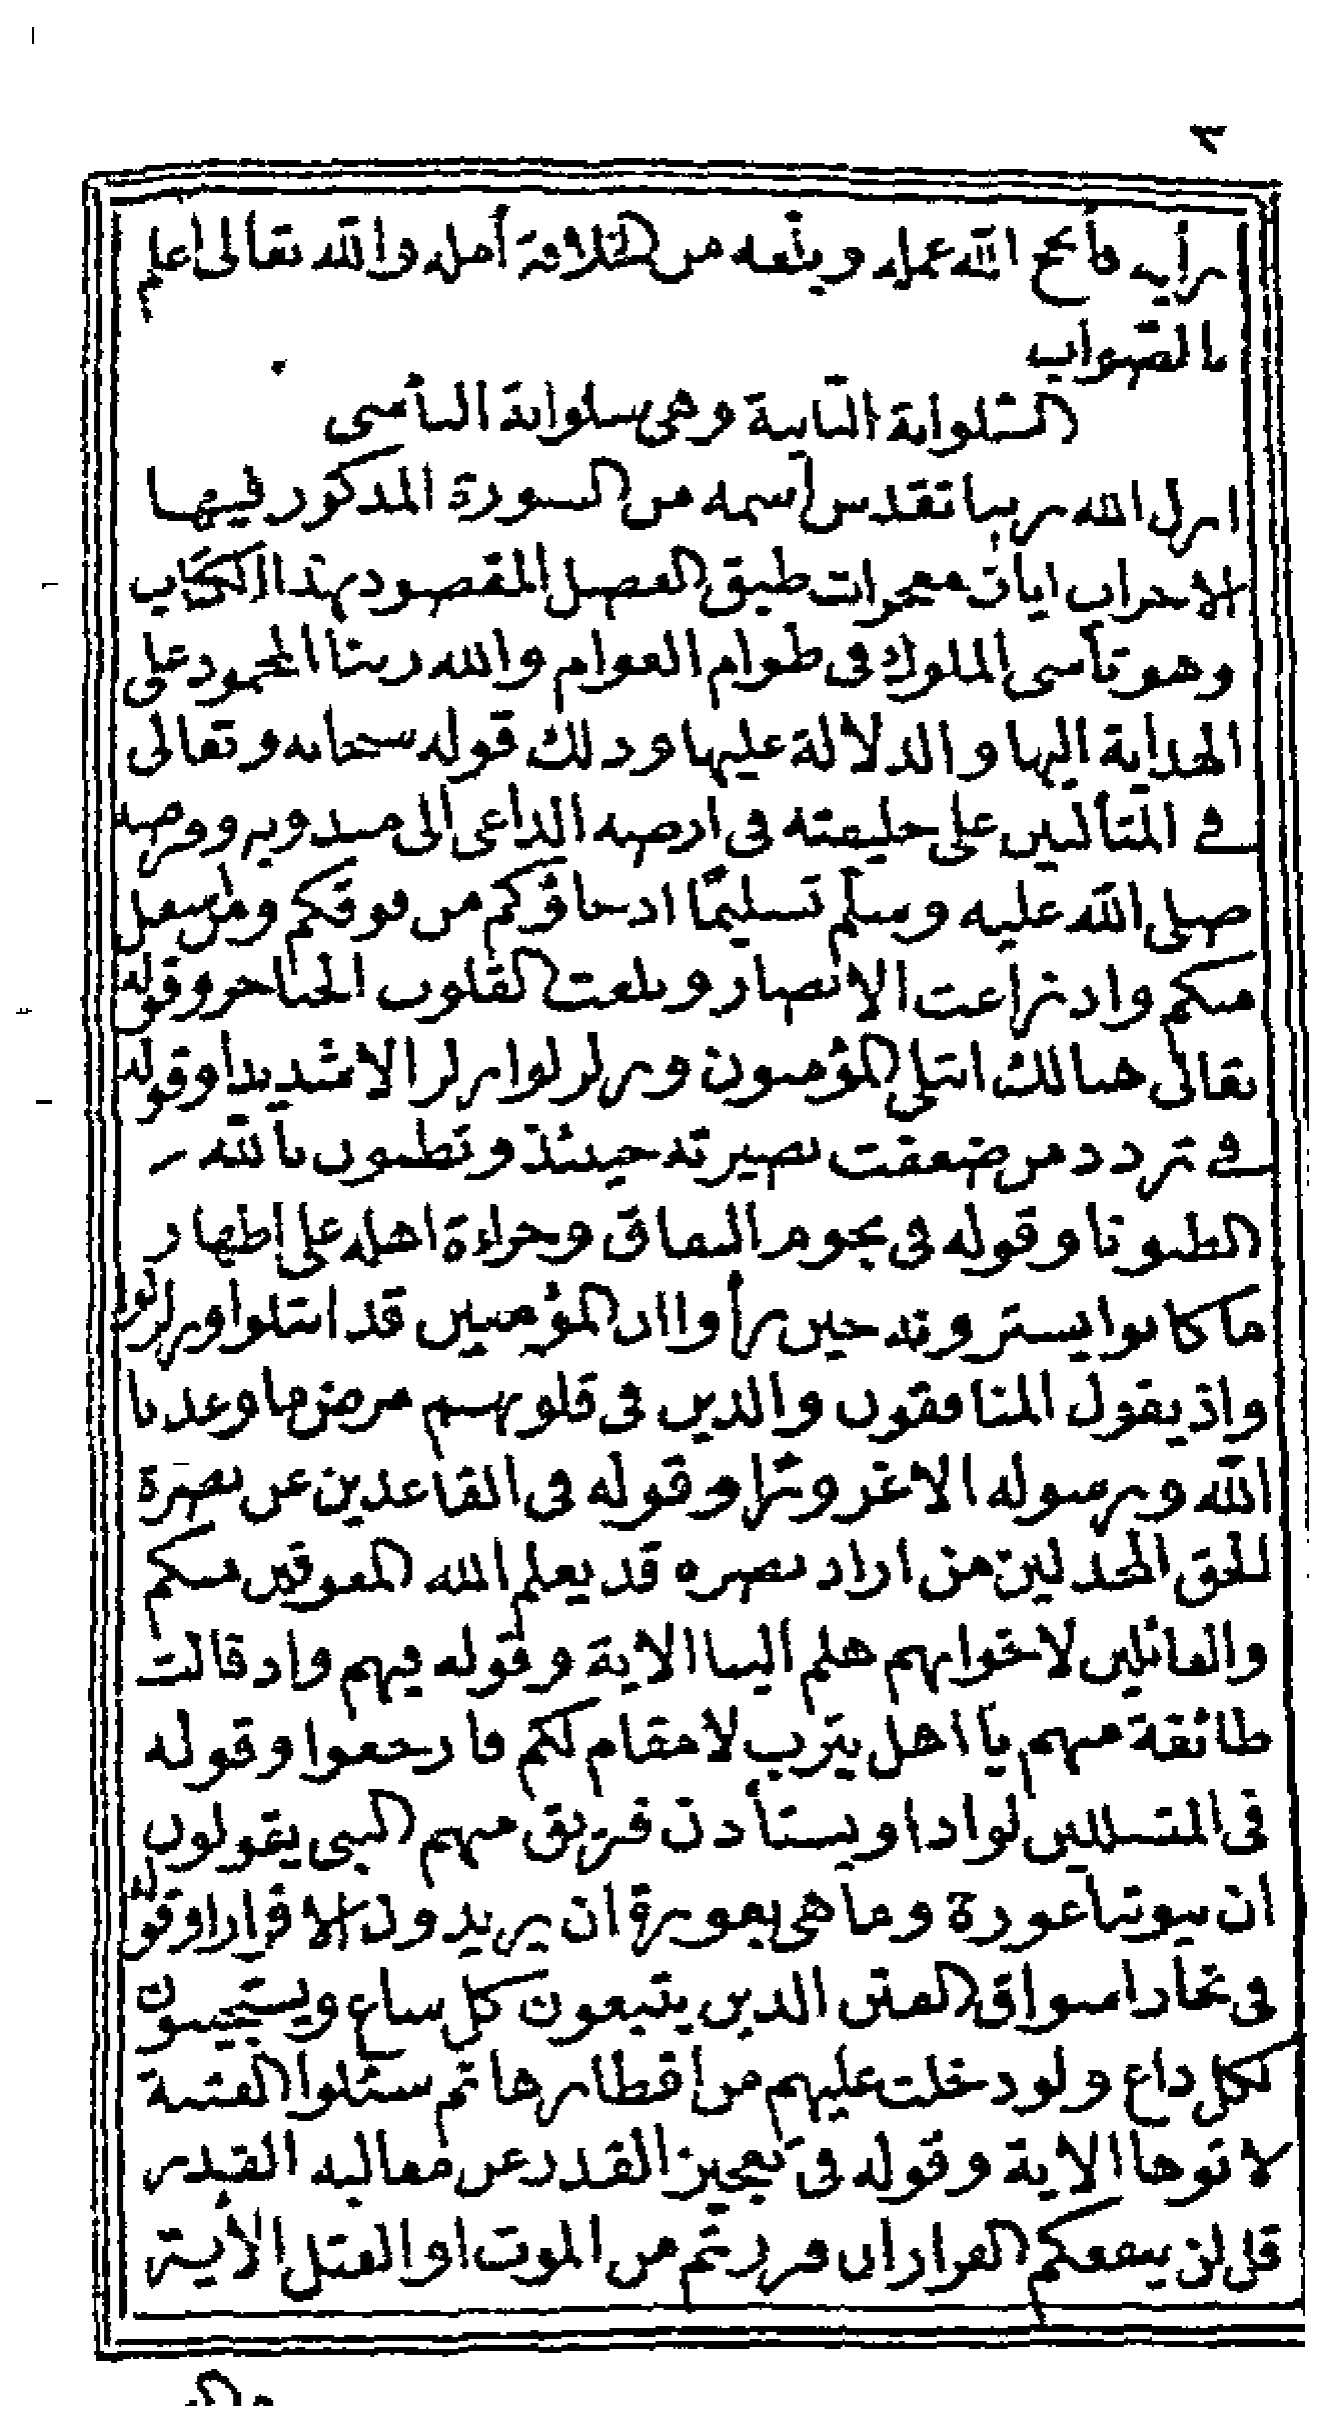 ٢
رأيه فأنجح الله عمله وبلغه من خلافته أمله والله تعالى اعلم
بالصواب
السلوانة الثانية وهى سلوانة التأسى
انزل الله ربنا تقدس اسمه من السورة المذكور فيها
الاحزاب ايات معجزات طبق الفصل المقصود بهذا الكتاب
وهو تأسى الملوك فى طوام العوام والله ربنا المحمود على
الهداية اليها والدلالة عليها وذلك قوله سبحانه وتعالى
فى المتألبين على خليفته فى ارضه الداعى الى مندوبه وفرضه
صلى الله عليه وسلم تسليمًا اذ جاؤكم من فوقكم ومن سفل
منكم واذ زاغت الابصار وبلغت القلوب الحناجر وقوله
تعالى هنالك ابتلى المؤمنون وزلزلوا زلزالا شديدا وقوله
فى تردد من ضعفت بصيرته حينئذ وتظنون بالله
الظنونا وقوله فى نجوم النفاق وجراءة اهله على اظهار
ما كانوا يسترونه حين رأوا ان المؤمنين قد ابتلوا وزلزلوا
واذ يقول المنافقون والذين فى قلوبهم مرض ما وعدنا
الله ورسوله الا غرورًا وقوله فى القاعدين عن نصرة
للحق المخذلين من اراد نصره قد يعلم الله المعوقين منكم
والقائلين لاخوانهم هلم الينا الاية وقوله فيهم واذ قالت
طائفة منهم يا اهل يثرب لا مقام لكم فارجعوا وقوله
فى المتسللين لواذا ويستأذن فريق منهم النبى يقولون
ان بيوتنا عورة وما هى بعورة ان يريدون الا فرارا وقوله
فى تجار اسواق الفتن الذين يتبعون كل ساع ويستجيبون
لكل داع ولو دخلت عليهم من اقطارها ثم سئلوا الفتنة
لاتوها الاية وقوله فى تعجيز القدر عن مغالبه القدر
قل لن ينفعكم الفرار ان فررتم من الموت او القتل الأية